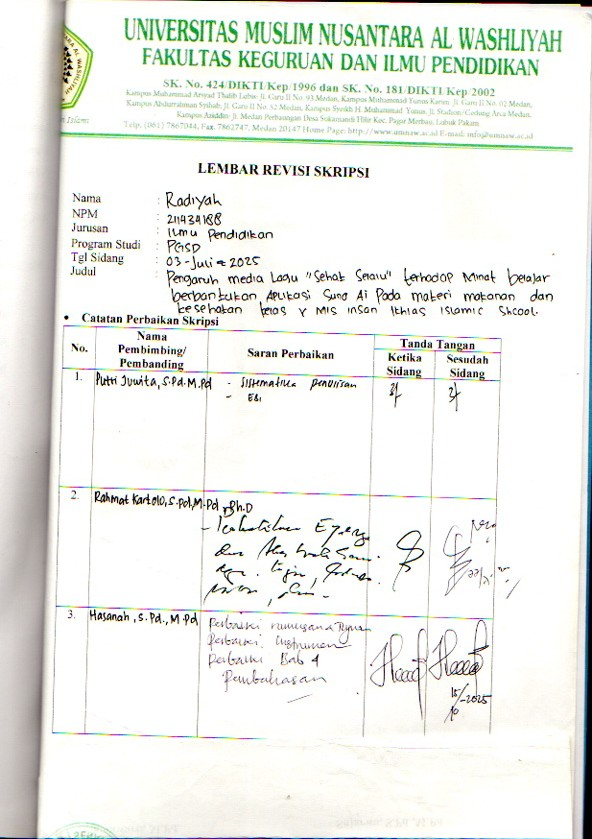 UNIVERSITAS MUSLIM NUSANTARA AL WASHLIYAH
FAKULTAS KEGURUAN DAN ILMU PENDIDIKAN
SK. No. 424/DIKTI/Kep/1996 dan SK. No. 181/DIKTI/Kep/2002
Kampus Muhammad Arsyad Thalib Lubis: Jl. Garu II No. 93 Medan, Kampus Muhammad Yunus Karim: Jl. Garu II No. 02 Medan,
Kampus Abdurrahman Syihab: Jl. Garu II No. 52 Medan, Kampus Syeikh H. Muhammad Yunus, Jl. Stadion/Gedung Arca Medan,
Kampus Aziddin: Jl. Medan Perbaungan Desa Sukamandi Hilir Kec. Pagar Merbau, Lubuk Pakam
Telp. (061) 7867044, Fax. 7862747, Medan 20147 Home Page: http://www.umnaw.ac.id E-mail: info@umnaw.ac.id
LEMBAR REVISI SKRIPSI
Nama : Radiyah
NPM : 211434188
Jurusan : Ilmu Pendidikan
Program Studi : PGSD
Tgl Sidang : 03 - Juli - 2025
Judul : Pengaruh media Lagu "Sehat Selalu" terhadap Minat belajar
berbantukan Aplikasi Suno Ai Pada materi makanan dan
kesehatan kelas V MIS Insan Ikhlas Islamic Shcool.
• Catatan Perbaikan Skripsi
No. Nama Pembimbing/ Pembanding Saran Perbaikan Tanda Tangan
Ketika Sidang Sesudah Sidang
1. Putri Juwita, S.Pd.M.Pd - Sistematika penulisan
2. Rahmat Kartolo, S.Pd, M.Pd, Ph.D
3. Hasanah, S.Pd., M.Pd Perbaiki rumusan
perbaiki Instrumen
perbaiki Bab 4
Pembahasan
15/10-2025